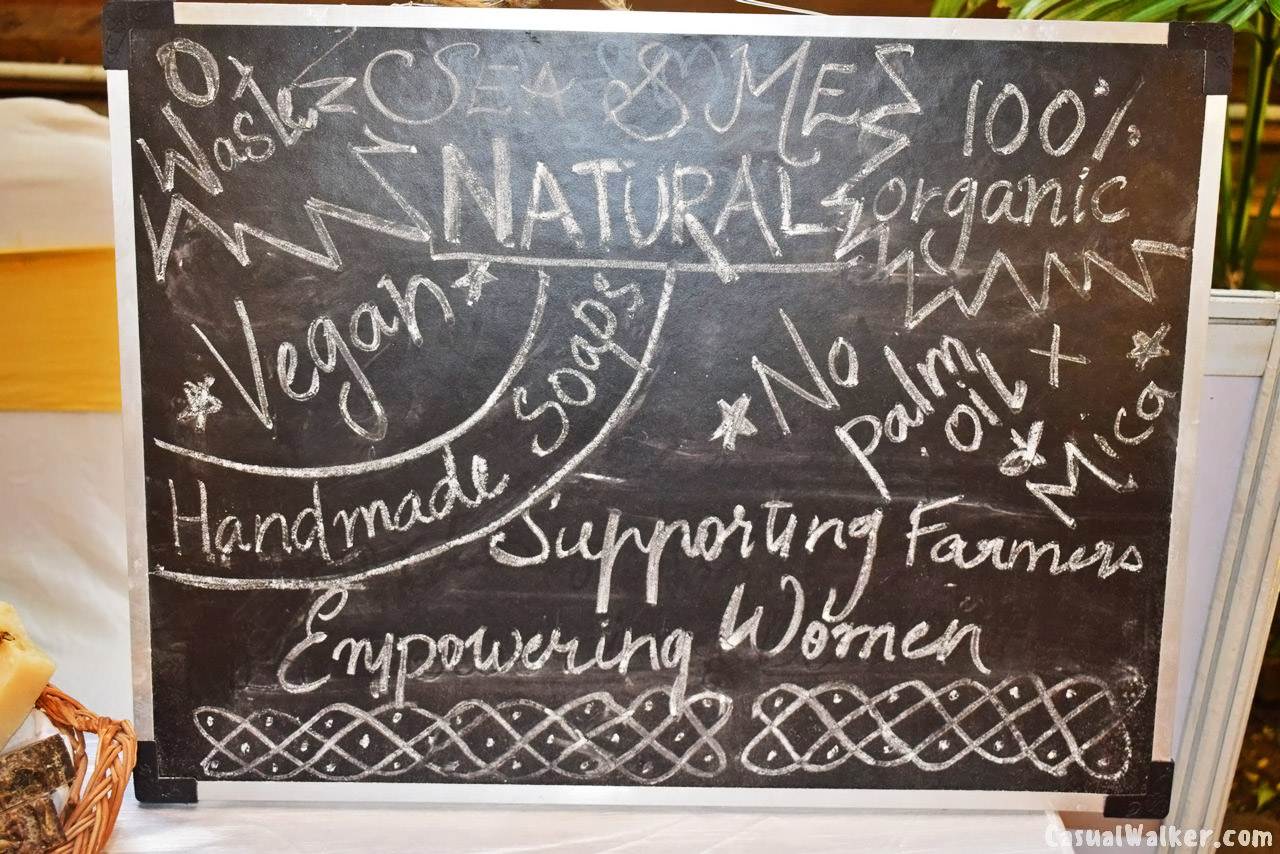 0
Waste
SEA & ME
100%
organic
NATURAL
Vegan
Handmade Soaps
No
palm
oil +
Mica
Supporting Farmers
Empowering Women
CasualWalker.com